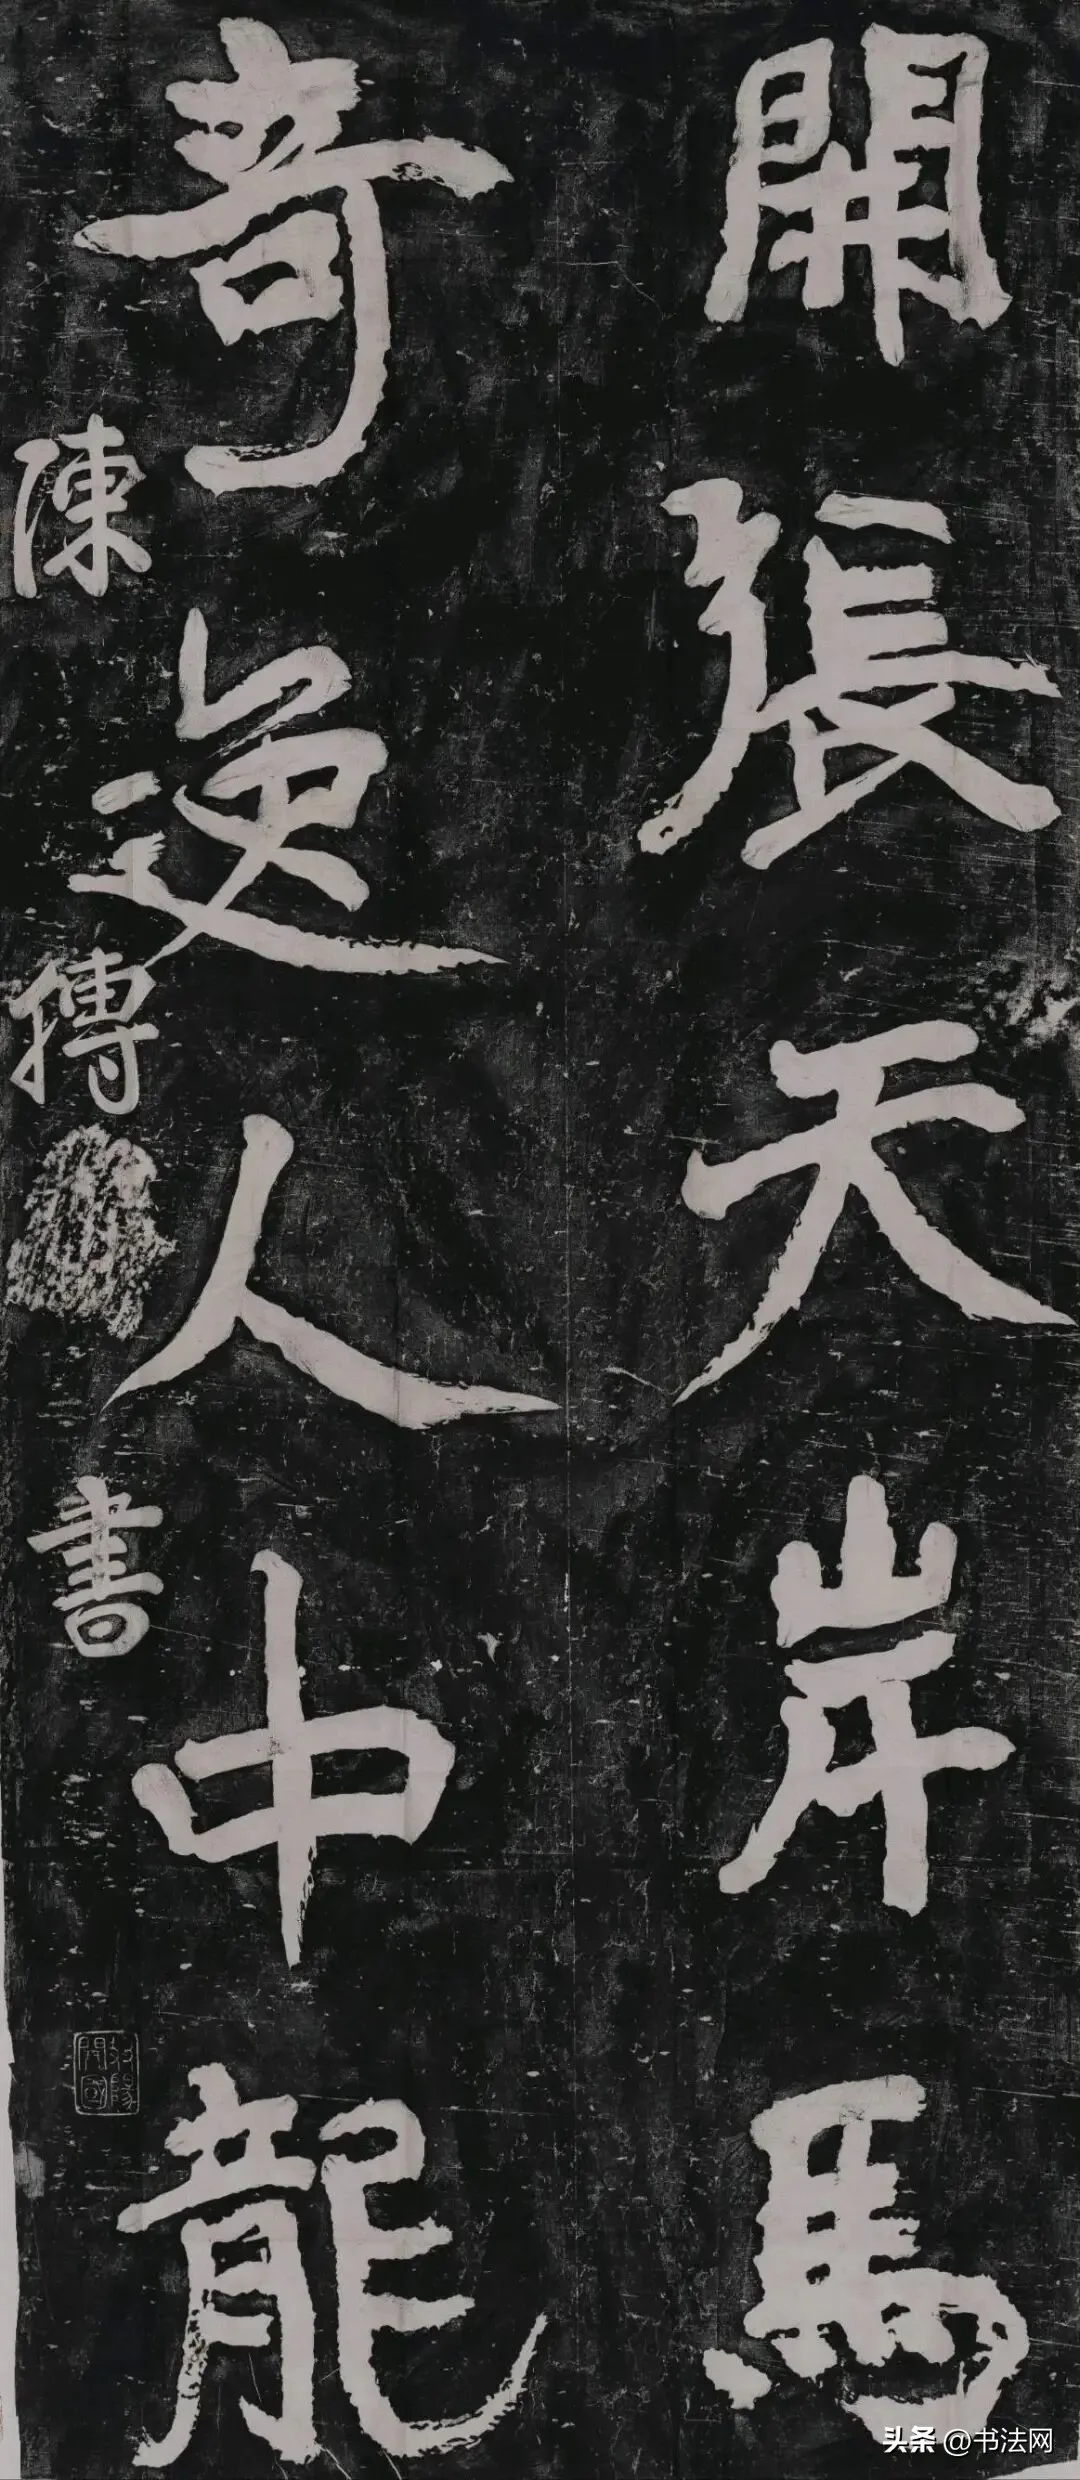 開張天岸馬
奇逸人中龍
陳摶書
頭条 @书法网